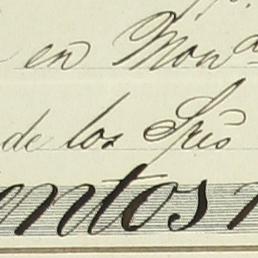 en Mon^da
de los Sres
entos